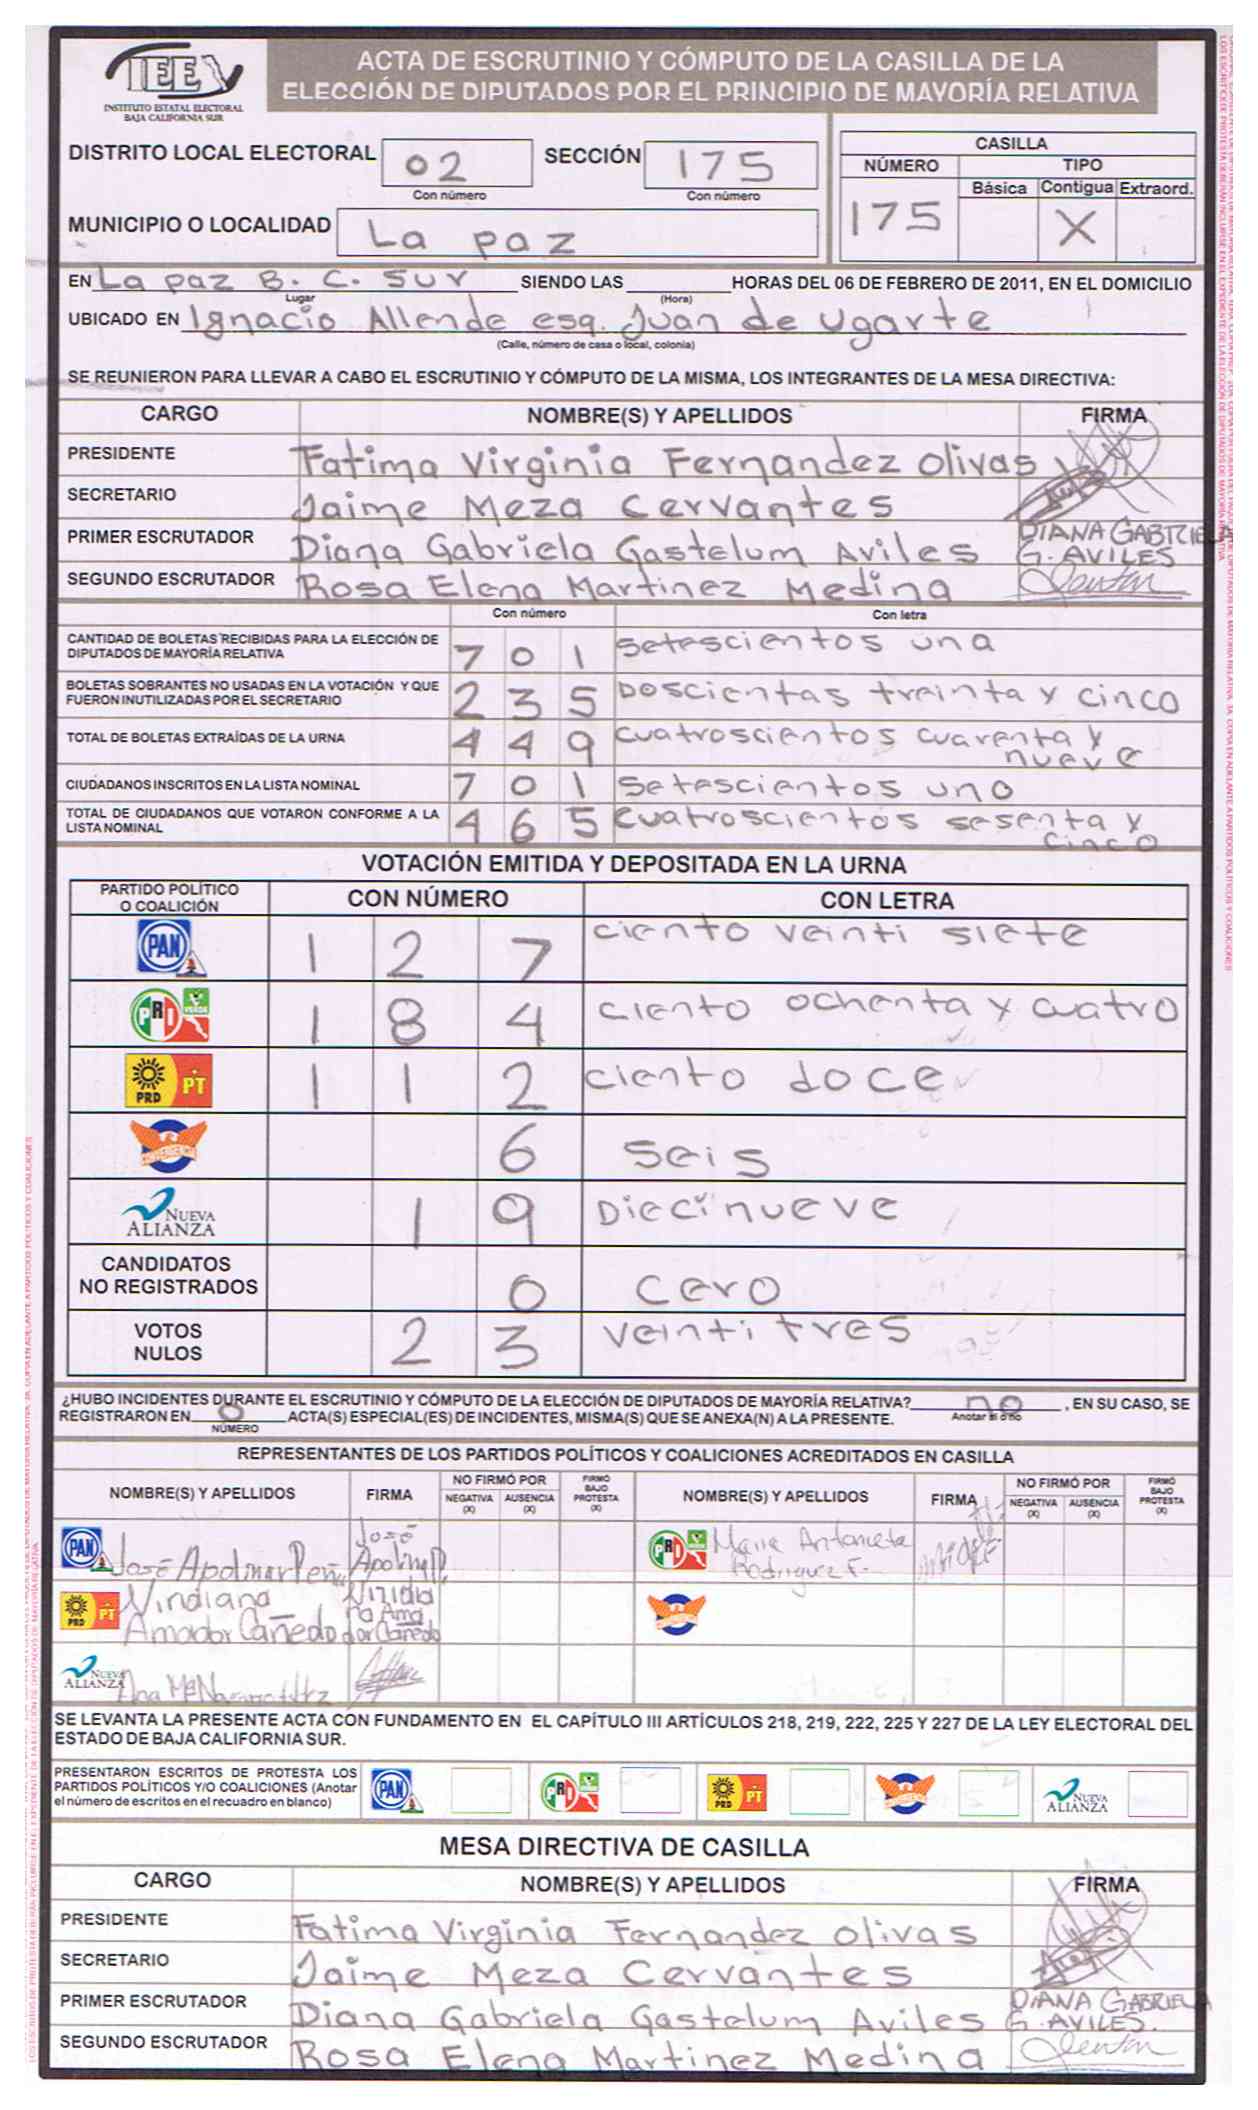 IEEY
INSTITUTO ESTATAL ELECTORAL
BAJA CALIFORNIA SUR
ACTA DE ESCRUTINIO Y CÓMPUTO DE LA CASILLA DE LA
ELECCIÓN DE DIPUTADOS POR EL PRINCIPIO DE MAYORÍA RELATIVA
DISTRITO LOCAL ELECTORAL 02 SECCIÓN 175
Con número Con número
MUNICIPIO O LOCALIDAD La paz
CASILLA
NÚMERO TIPO
Básica Contigua Extraord.
175 X
EN La paz B. C. SUR SIENDO LAS HORAS DEL 06 DE FEBRERO DE 2011, EN EL DOMICILIO
Lugar (Hora)
UBICADO EN Ignacio Allende esq. Juan de Ugarte
(Calle, número de casa o local, colonia)
SE REUNIERON PARA LLEVAR A CABO EL ESCRUTINIO Y CÓMPUTO DE LA MISMA, LOS INTEGRANTES DE LA MESA DIRECTIVA:
CARGO NOMBRE(S) Y APELLIDOS FIRMA
PRESIDENTE Fatima Virginia Fernandez Olivas
SECRETARIO Jaime Meza Cervantes
PRIMER ESCRUTADOR Diana Gabriela Gastelum Aviles DIANA GABRIELA G. AVILES
SEGUNDO ESCRUTADOR Rosa Elena Martinez Medina
Con número Con letra
CANTIDAD DE BOLETAS RECIBIDAS PARA LA ELECCIÓN DE
DIPUTADOS DE MAYORÍA RELATIVA 7 0 1 setescientos una
BOLETAS SOBRANTES NO USADAS EN LA VOTACIÓN Y QUE
FUERON INUTILIZADAS POR EL SECRETARIO 2 3 5 Doscientas treinta y cinco
TOTAL DE BOLETAS EXTRAÍDAS DE LA URNA 4 4 9 cuatroscientos cuarenta y nueve
CIUDADANOS INSCRITOS EN LA LISTA NOMINAL 7 0 1 setescientos uno
TOTAL DE CIUDADANOS QUE VOTARON CONFORME A LA
LISTA NOMINAL 4 6 5 cuatroscientos sesenta y cinco
VOTACIÓN EMITIDA Y DEPOSITADA EN LA URNA
PARTIDO POLÍTICO
O COALICIÓN CON NÚMERO CON LETRA
PAN 1 2 7 ciento veinti siete
PRI VERDE 1 8 4 ciento ochenta y cuatro
PRD PT 1 1 2 ciento doce
CONVERGENCIA 6 seis
NUEVA ALIANZA 1 9 Diecinueve
CANDIDATOS
NO REGISTRADOS 0 cero
VOTOS
NULOS 2 3 veinti tres
¿HUBO INCIDENTES DURANTE EL ESCRUTINIO Y CÓMPUTO DE LA ELECCIÓN DE DIPUTADOS DE MAYORÍA RELATIVA? no , EN SU CASO, SE
Anotar si o no
REGISTRARON EN 0 ACTA(S) ESPECIAL(ES) DE INCIDENTES, MISMA(S) QUE SE ANEXA(N) A LA PRESENTE.
NÚMERO
REPRESENTANTES DE LOS PARTIDOS POLÍTICOS Y COALICIONES ACREDITADOS EN CASILLA
NOMBRE(S) Y APELLIDOS FIRMA NO FIRMÓ POR NEGATIVA (X) AUSENCIA (X) FIRMÓ BAJO PROTESTA (X) NOMBRE(S) Y APELLIDOS FIRMA NO FIRMÓ POR NEGATIVA (X) AUSENCIA (X) FIRMÓ BAJO PROTESTA (X)
PAN José Apolinar Peña José Apolinar P. PRI VERDE Maria Antonieta Rodriguez F.
PRD PT Viridiana Amador Cañedo Viridiana Amador Cañedo
NUEVA ALIANZA Ana Ma
SE LEVANTA LA PRESENTE ACTA CON FUNDAMENTO EN EL CAPÍTULO III ARTÍCULOS 218, 219, 222, 225 Y 227 DE LA LEY ELECTORAL DEL
ESTADO DE BAJA CALIFORNIA SUR.
PRESENTARON ESCRITOS DE PROTESTA LOS
PARTIDOS POLÍTICOS Y/O COALICIONES (Anotar
el número de escritos en el recuadro en blanco) PAN PRI VERDE PRD PT CONVERGENCIA NUEVA ALIANZA
MESA DIRECTIVA DE CASILLA
CARGO NOMBRE(S) Y APELLIDOS FIRMA
PRESIDENTE Fatima Virginia Fernandez Olivas
SECRETARIO Jaime Meza Cervantes
PRIMER ESCRUTADOR Diana Gabriela Gastelum Aviles DIANA GABRIELA G. AVILES.
SEGUNDO ESCRUTADOR Rosa Elena Martinez Medina